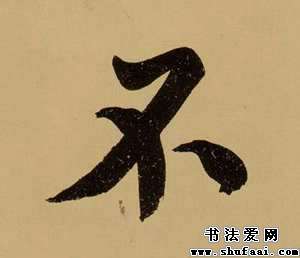 不
书法爱网
www.shufaai.com